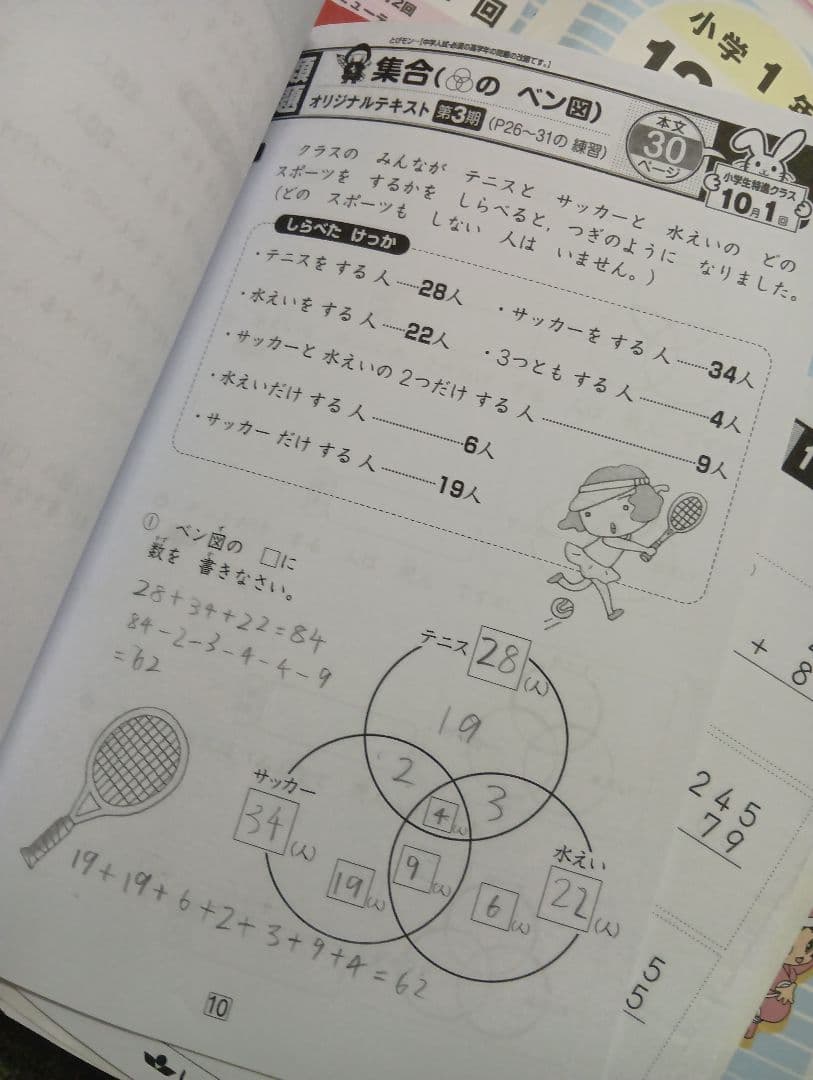 回
小学1年
とびモン…「中学入試・必須の高学年の問題の改題です。」
集合(の ベン図)
オリジナルテキスト 第3期 (P26〜31の 練習)
本文
30
ページ
小学生特進クラス
10月1回
クラスの みんなが テニスと サッカーと 水えいの どの
スポーツを するかを しらべると, つぎのように なりました。
(どの スポーツも しない 人は いません。)
しらべた けっか
・テニスを する 人……28人
・サッカーを する 人……34人
・水えいを する 人……22人
・3つとも する 人………4人
・サッカーと 水えいの 2つだけ する 人………9人
・水えいだけ する 人………6人
・サッカー だけ する 人………19人
① ベン図の □に
数を 書きなさい。
28+34+22=84
84-2-3-4-4-9
=62
テニス 28(人)
19
2
3
4(人)
サッカー
34(人)
19(人)
9(人)
6(人)
水えい
22(人)
19+19+6+2+3+9+4=62
10
+ 8
245
79
5
5